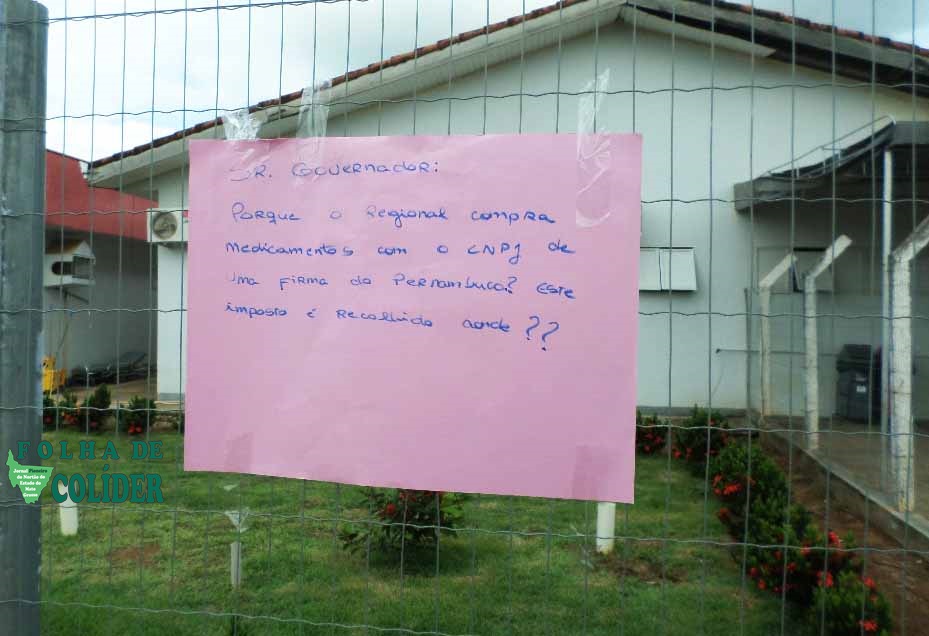 SR. GOVERNADOR:
Porque o Regional compra
medicamentos com o CNPJ de
uma firma do Pernambuco? Este
imposto é recolhido aonde ??
FOLHA DE
COLÍDER
Jornal Pioneiro
do Nortão do
Estado de
Mato
Grosso